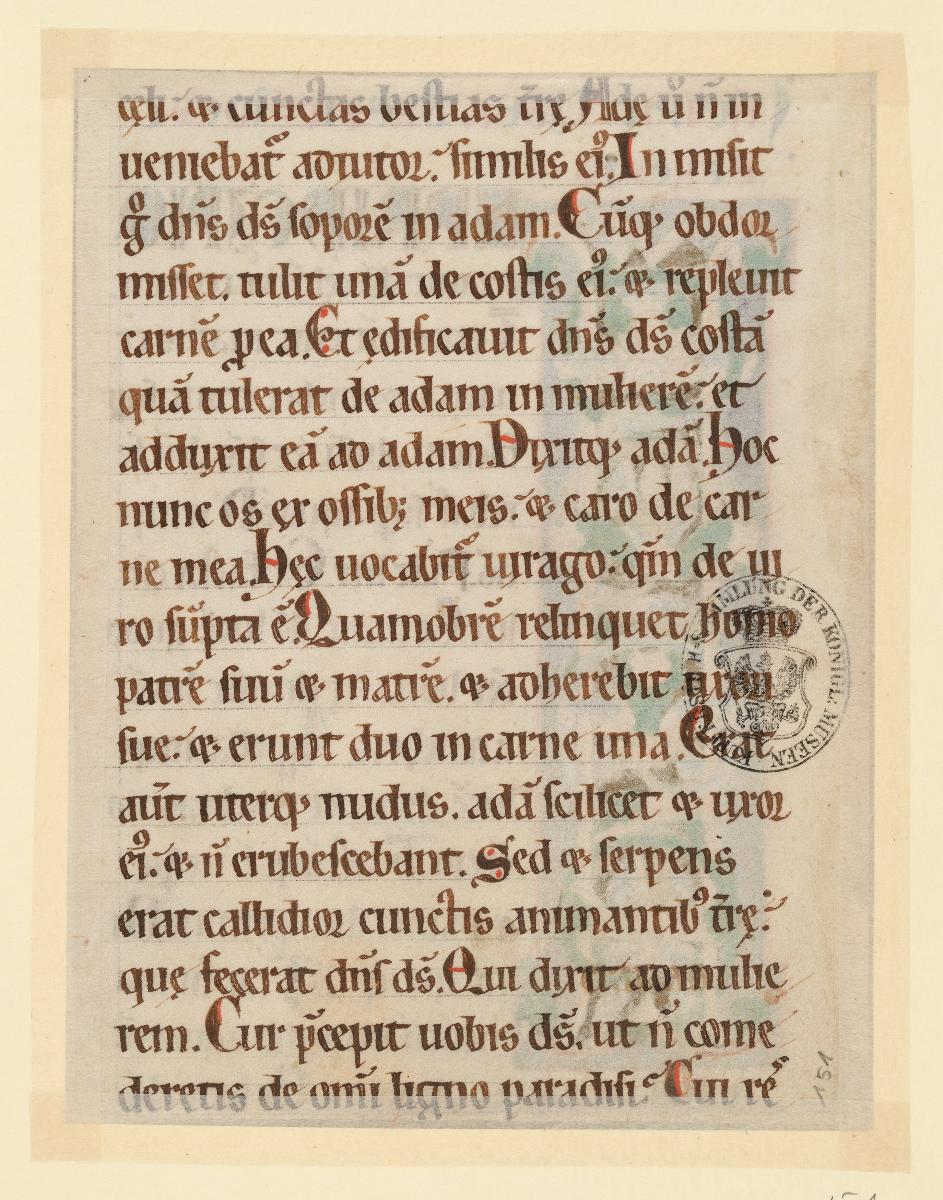 cęli. & cunctas bestias t̄rę Adę ů n̄ in
ueniebat᷑ adiutor. similis ei᷒. In misit
g̊ dn̄s ds̄ soporē in adam. Cūq; obdor
misset. tulit unā de costis ei᷒. & repleuit
carnē ꝑ ea. Et ędificauit dn̄s ds̄ costā
quā tulerat de adam in mulierē. et
adduxit eā ad adam. Dixitq; adā. Hoc
nunc os ex ossib; meis. & caro de car
ne mea. Hęc uocabit᷑ uirago. qm̄ de ui
ro sūpta ē. Quamobrē relinquet homo
patrē suū & matrē. & adherebit uxori
sue. & erunt duo in carne una.
aūt uterq; nudus. adā scilicet & uxor
ei᷒. & n̄ erubescebant. Sed & serpens
erat callidior cunctis animantib᷒ t̄rę.
quę fecerat dn̄s ds̄. Qui dixit ad mulie
rem. Cur p̄cepit uobis ds̄. ut n̄ come
deretis de omī ligno paradisi. Cui rē
SAMMLUNG DER KÖNIGL: MUSEEN
151